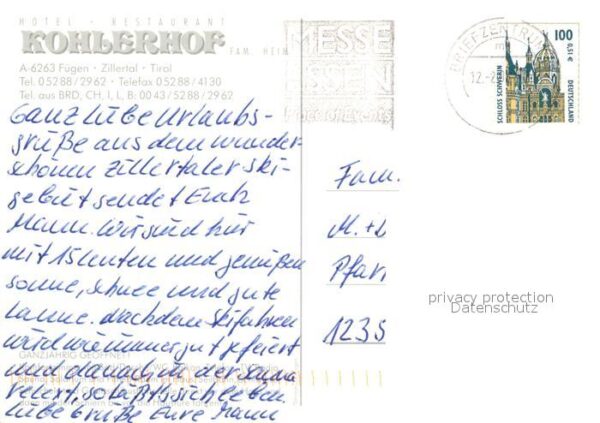 HOTEL - RESTAURANT
KOHLERHOF FAM. HEIM
A-6263 Fügen • Zillertal • Tirol
Tel. 05288/2962 • Telefax 05288/4130
Tel. aus BRD, CH, I, L, B: 0043/5288/2962
MESSE
ESSEN
BRIEFZENTRUM
12.-2
100
0,51€
SCHLOSS SCHWERIN
DEUTSCHLAND
Ganz liebe Urlaubs-
grüße aus dem wunder-
schönen Zillertaler Ski-
gebiet sendet Euch
Mann. Wir sind hier
mit 15 Leuten und genießen
Sonne, Schnee und gute
Laune. Nach dem Skifahren
wird wie immer gut gefeiert
und danach in der Sauna
relext, so läßt's sich leben
liebe Grüße Eure Mann
GANZJÄHRIG GEÖFFNET!
Fam.
M. +
Pfar
1235
privacy protection
Datenschutz